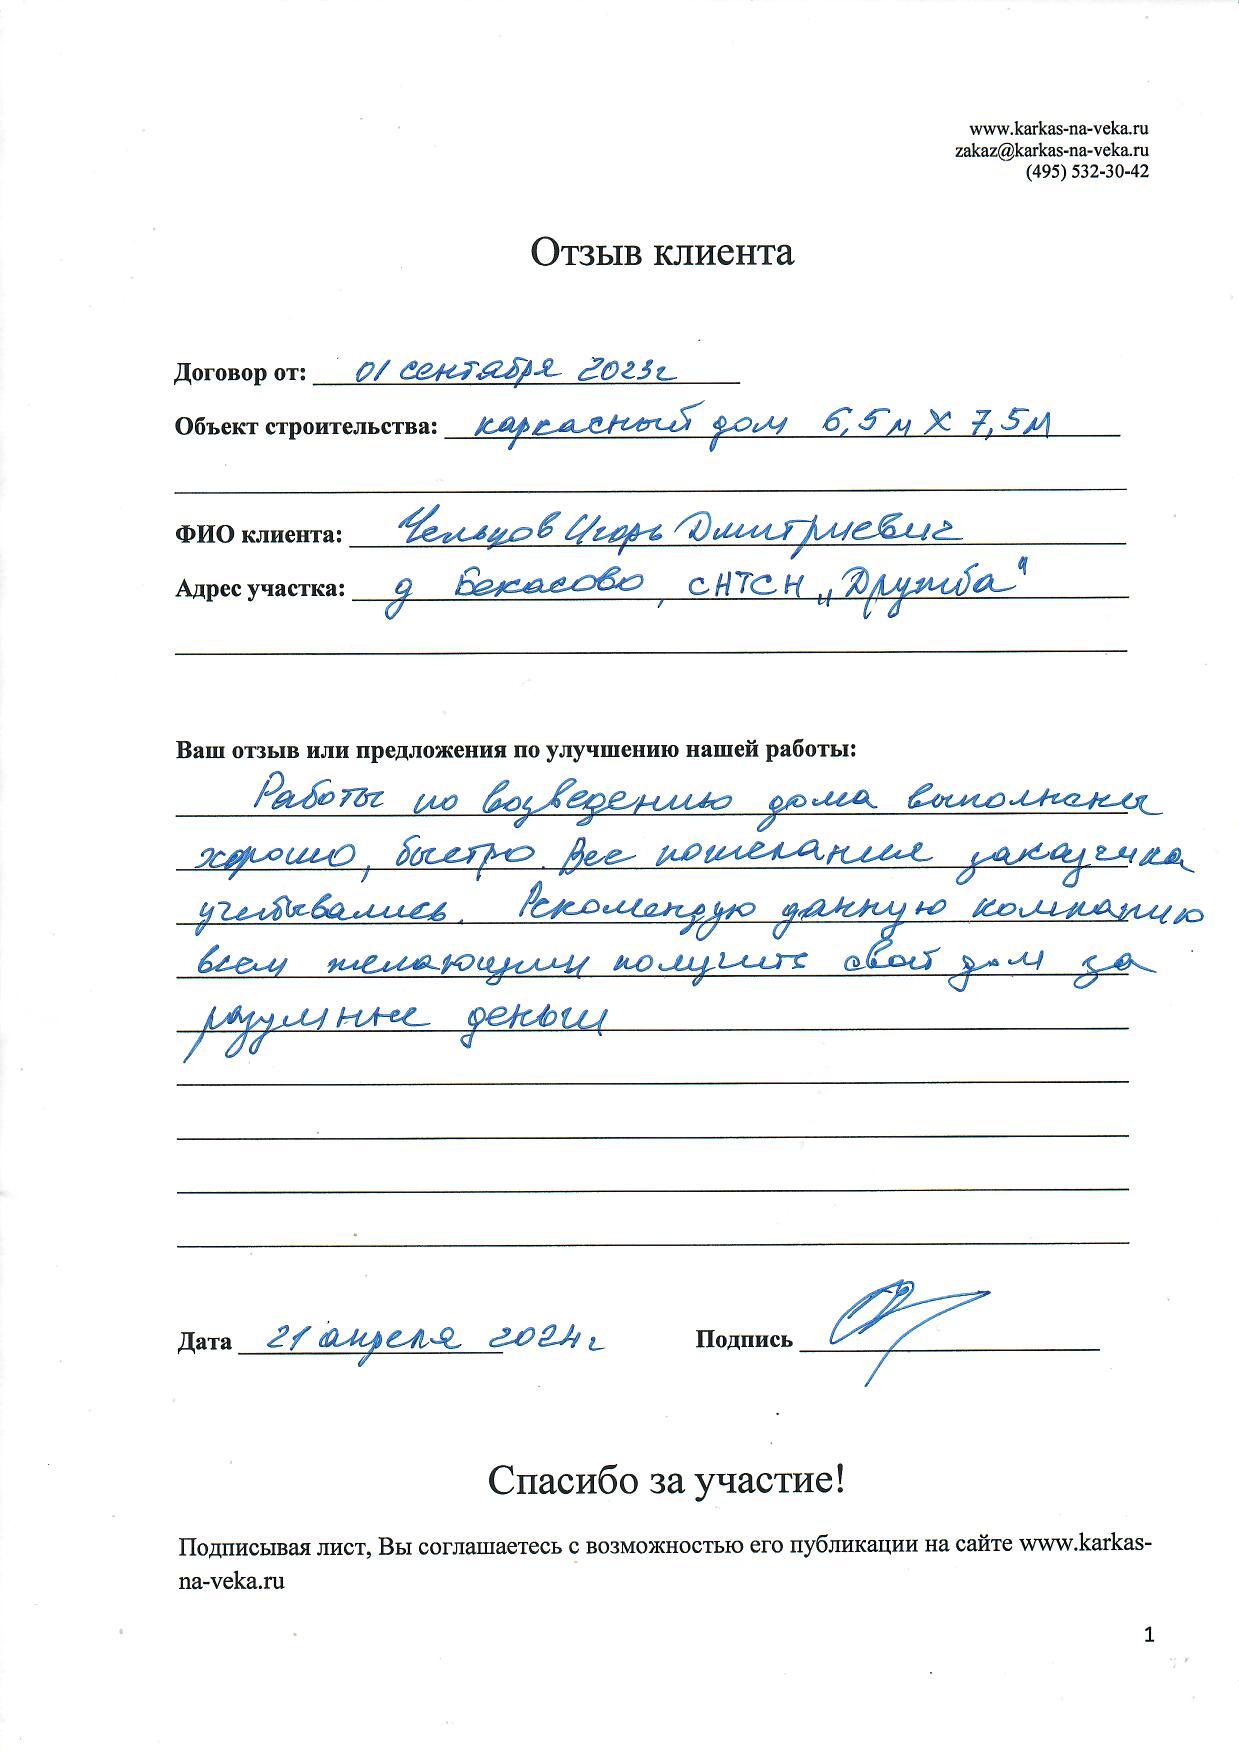 www.karkas-na-veka.ru
zakaz@karkas-na-veka.ru
(495) 532-30-42
Отзыв клиента
Договор от: 01 сентября 2023г
Объект строительства: каркасный дом 6,5м X 7,5м
ФИО клиента: Чельцов Игорь Дмитриевич
Адрес участка: д Бекасово, СНТСН „Дружба“
Ваш отзыв или предложения по улучшению нашей работы:
Работы по возведению дома выполнены
хорошо, быстро. Все пожелания заказчика
учитывались. Рекомендую данную компанию
всем желающим получить свой дом за
разумные деньги
Дата 21 апреля 2024г Подпись
Спасибо за участие!
Подписывая лист, Вы соглашаетесь с возможностью его публикации на сайте www.karkas-
na-veka.ru
1